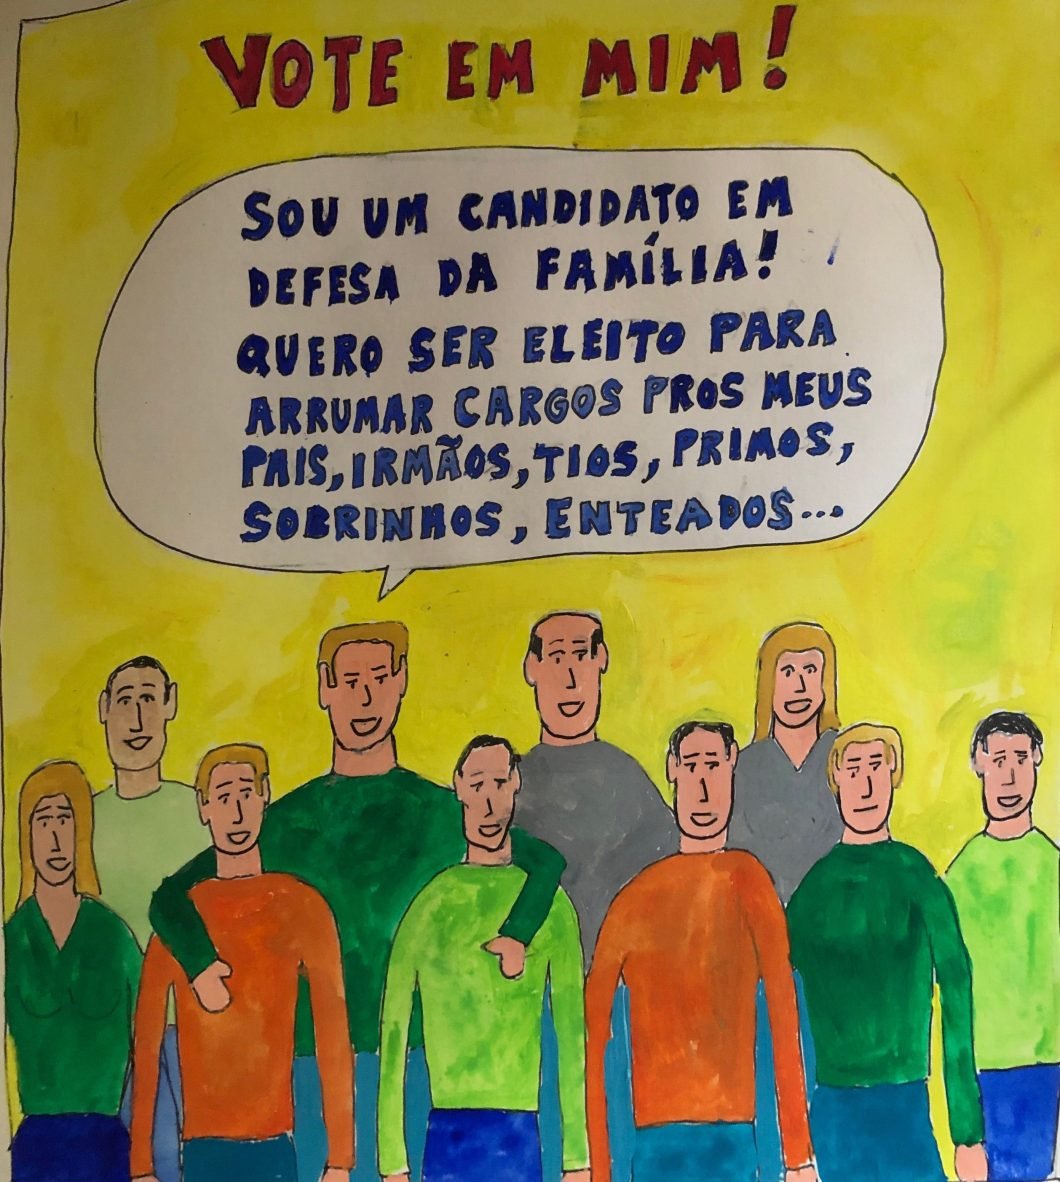 VOTE EM MIM!
SOU UM CANDIDATO EM
DEFESA DA FAMÍLIA!
QUERO SER ELEITO PARA
ARRUMAR CARGOS PROS MEUS
PAIS, IRMÃOS, TIOS, PRIMOS,
SOBRINHOS, ENTEADOS...